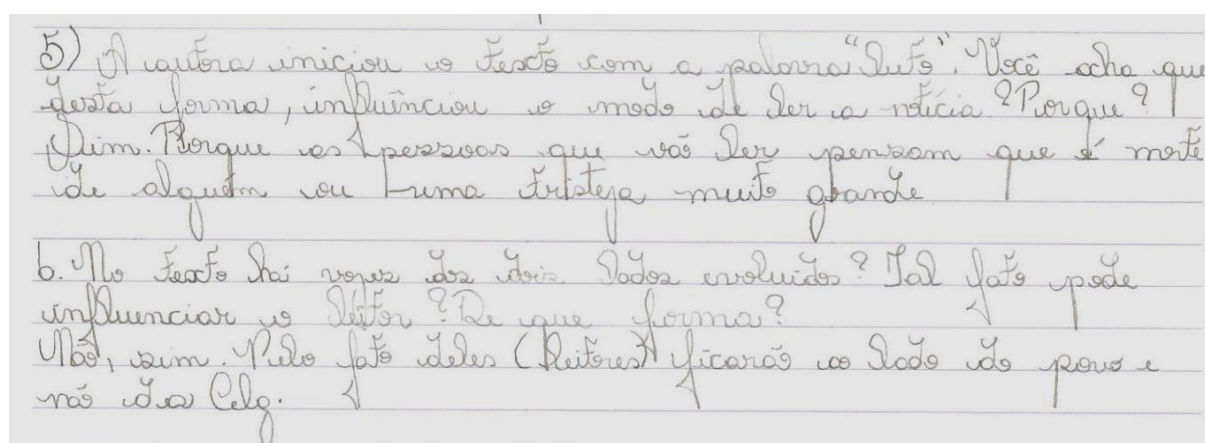 5) A autora iniciou o texto com a palavra "luto". Você acha que
desta forma, influênciou o modo de ler a notícia? Porque?
Sim. Porque as pessoas que vão ler pensam que é morte
de alguém ou uma tristeja muito grande
6. No texto há vozes dos dois lados evoluidos? Tal fato pode
influenciar o leitor? De que forma?
Não, sim. Pelo fato deles (leitores) ficarão ao lado do povo e
não da Celg.